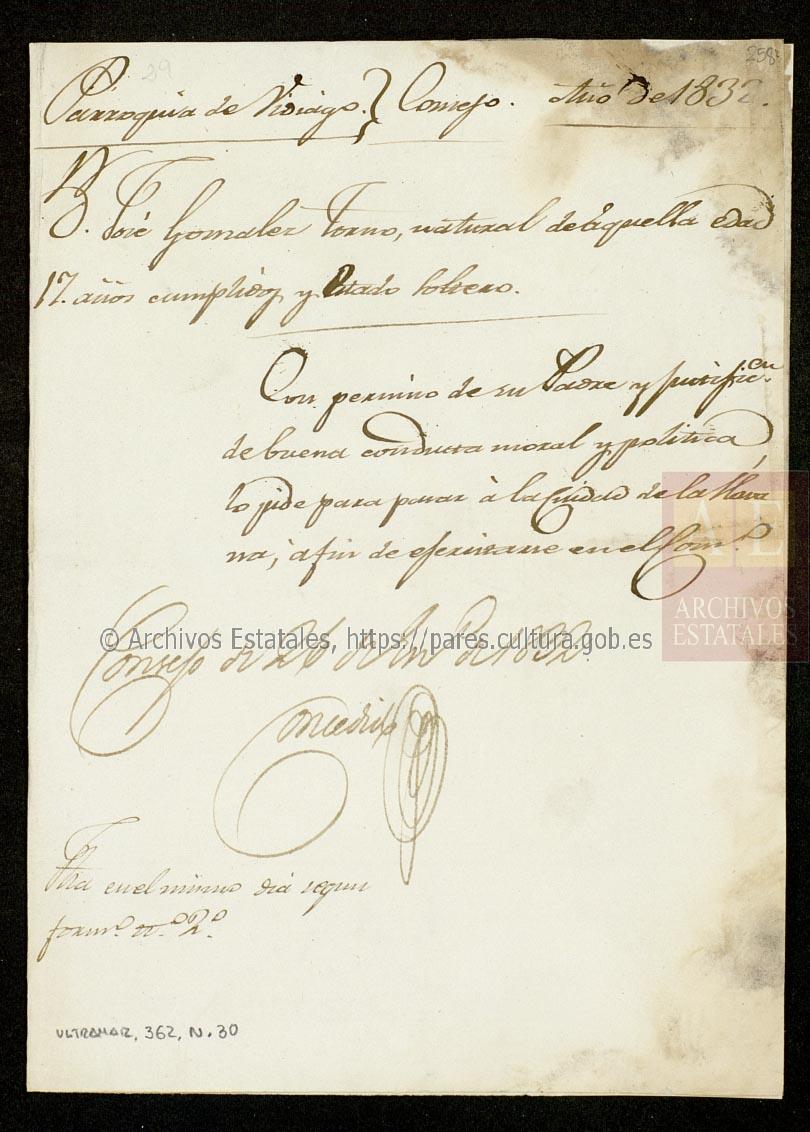 29
258
Párroquia de Vidiago. } Consejo. Año de 1832.
D. José Gomalez Torno, natural de aquella edad
17. años cumplidos y Estado soltero.
Con permiso de su Padre y justific.on
de buena conducta moral y politica,
lo pide para pasar à la Ciudad de la Hava
na, à fin de efercitarse en el Com.o
Consejo de 26 de En.o de 1832.
Concedido
Fha en el mismo dia segun
form.o n.o 2.o
ULTRAMAR, 362, N.30
© Archivos Estatales, https://pares.cultura.gob.es
AE
ARCHIVOS
ESTATALES